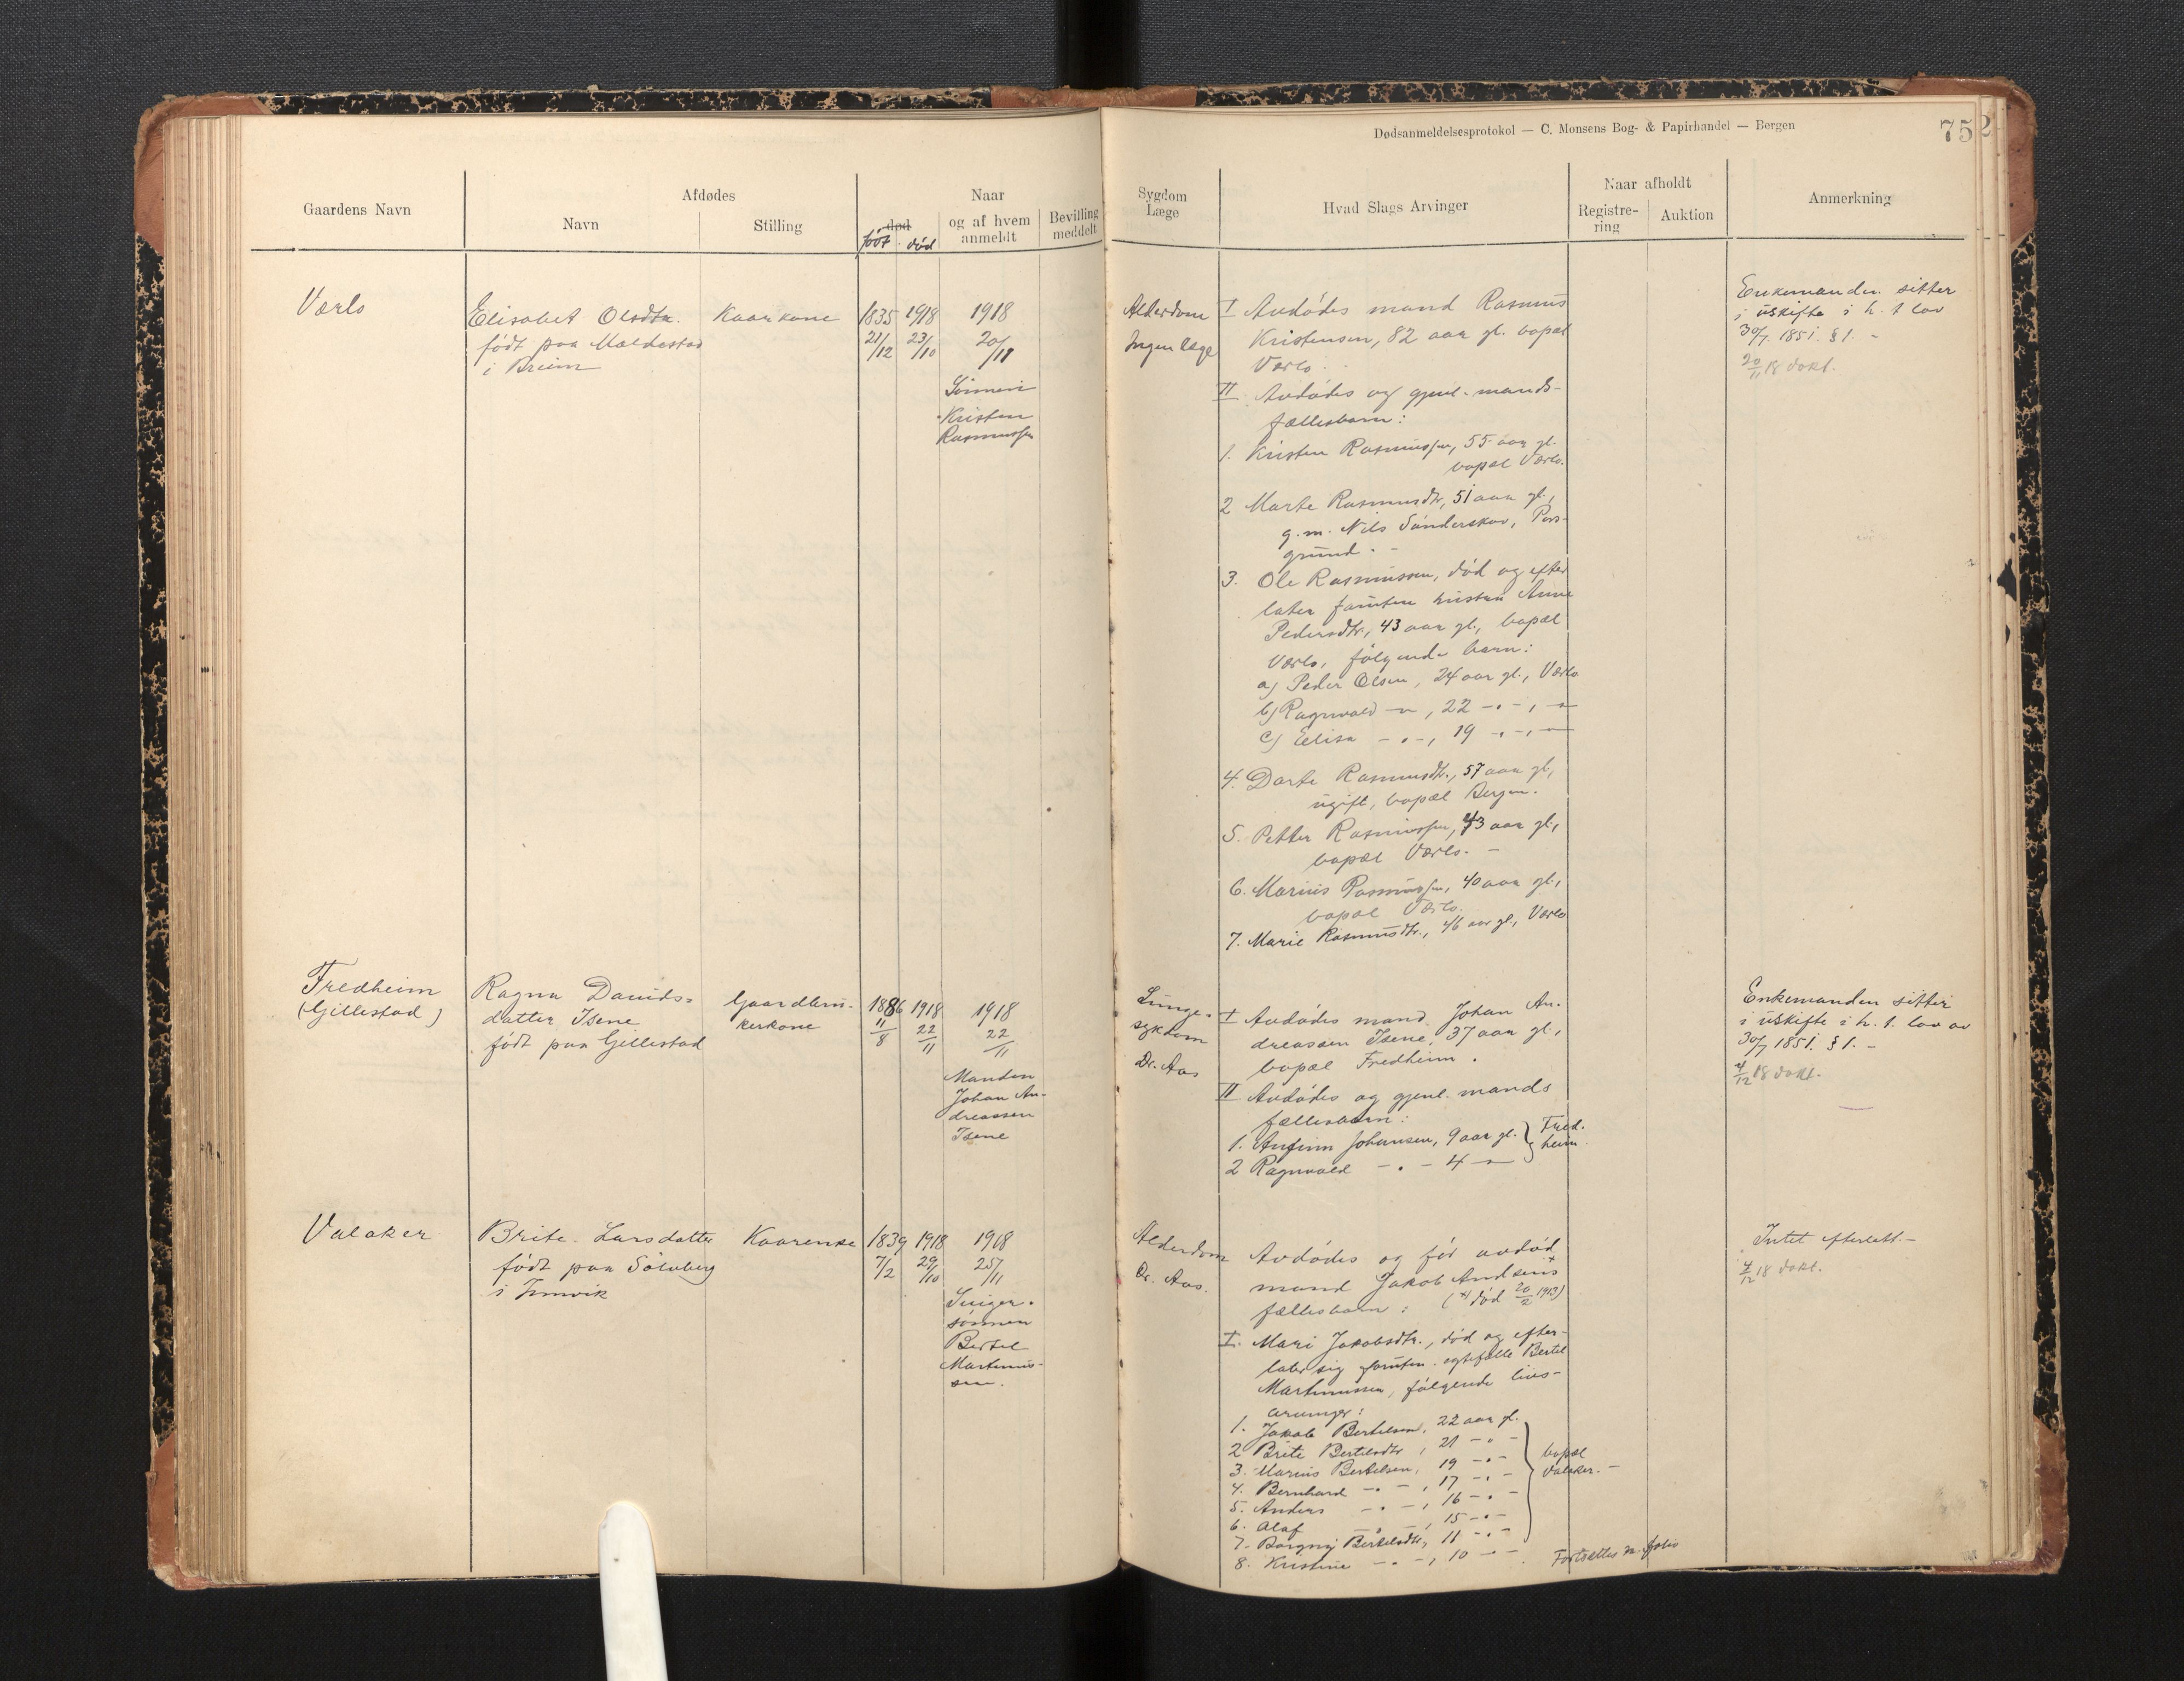 Dødsanmeldelsesprotokol — C. Monsens Bog- & Papirhandel — Bergen
75
Gaardens Navn
Afdødes
Navn
Stilling
død
født død
Naar
og af hvem
anmeldt
Bevilling
meddelt
Sygdom
Læge
Hvad Slags Arvinger
Naar afholdt
Registre-
ring
Auktion
Anmerkning
Værlo
Elisabet Olsdtr.
født paa Mældestad
i Breim
Kaarkone
1835
21/12
1918
23/10
1918
20/11
Sønnen
Kristen
Rasmussen
Alderdom
Ingen læge
I Avdødes mand Rasmus
Kristensen, 82 aar gl. bopæl
Værlo.
II Avdødes og gjenl. mands
fællesbarn:
1. Kristen Rasmussen, 55 aar gl.
bopæl Værlo.
2 Marte Rasmusdtr, 51 aar gl.,
g. m. Nils Sønderskov, Pors-
grund. -
3. Ole Rasmussen, død og efter
later foruten hustru Anne
Pedersdtr., 43 aar gl., bopæl
Værlo, følgende barn:
a) Peder Olsen, 24 aar gl., Værlo
b) Ragnvald -"-, 22 -"-, -"-
c) Elisa -"-, 19 -"-, -"-
4. Dorte Rasmusdtr., 57 aar gl.,
ugift, bopæl Bergen.
5. Petter Rasmussen, 43 aar gl.,
bopæl Værlo. -
6. Marius Rasmussen, 40 aar gl.,
bopæl Værlo.
7. Marie Rasmusdtr., 46 aar gl., Værlo
Enkemanden sitter
i uskifte i h. t. lov
30/7 1851 § 1. -
20/11 18 dokt.
Fredheim
(Gillestad)
Ragna Davids-
datter Isene
født paa Gillestad
Gaardbru-
kerkone
1886
11/8
1918
22/11
1918
22/11
Manden
Johan An-
dreassen
Isene
Lunge-
sykdom
Dr. Aas
I Avdødes mand Johan An-
dreassen Isene, 37 aar gl.,
bopæl Fredheim.
II Avdødes og gjenl. mands
fællesbarn:
1. Anfinn Johansen, 9 aar gl. } Fred-
2 Ragnvald -"- 4 -"- } heim.
Enkemanden sitter
i uskifte i h. t. lov av
30/7 1851 § 1. -
4/12 18 dokt.
Valaker
Brite Larsdatter
født paa Sølvberg
i Innvik
Kaarenke
1839
7/2
1918
29/10
1918
25/11
Sviger-
sønnen
Bertel
Martinus-
sen.
Alderdom
Dr. Aas.
Avdødes og før avdød
mand Jakob Andsens x
fællesbarn: (x) død 20/2 1913)
I. Mari Jakobsdtr., død og efter-
later sig foruten egtefælle Bertel
Martinussen, følgende livs-
arvinger:
1. Jakob Bertelsen, 22 aar gl.
2 Brite Bertelsdtr, 21 -"-
3. Marius Bertelsen, 19 -"-
4. Bernhard -"-, 17 -"-
5. Anders -"-, 16 -"-
6. Olaf -"-, 15 -"-
7. Borgny Bertelsdtr, 11 -"-
8. Kristine -"-, 10 -"-
bopæl
Valaker. -
Fortsættes n. folio
Intet efterlatt. -
4/12 18 dokt.